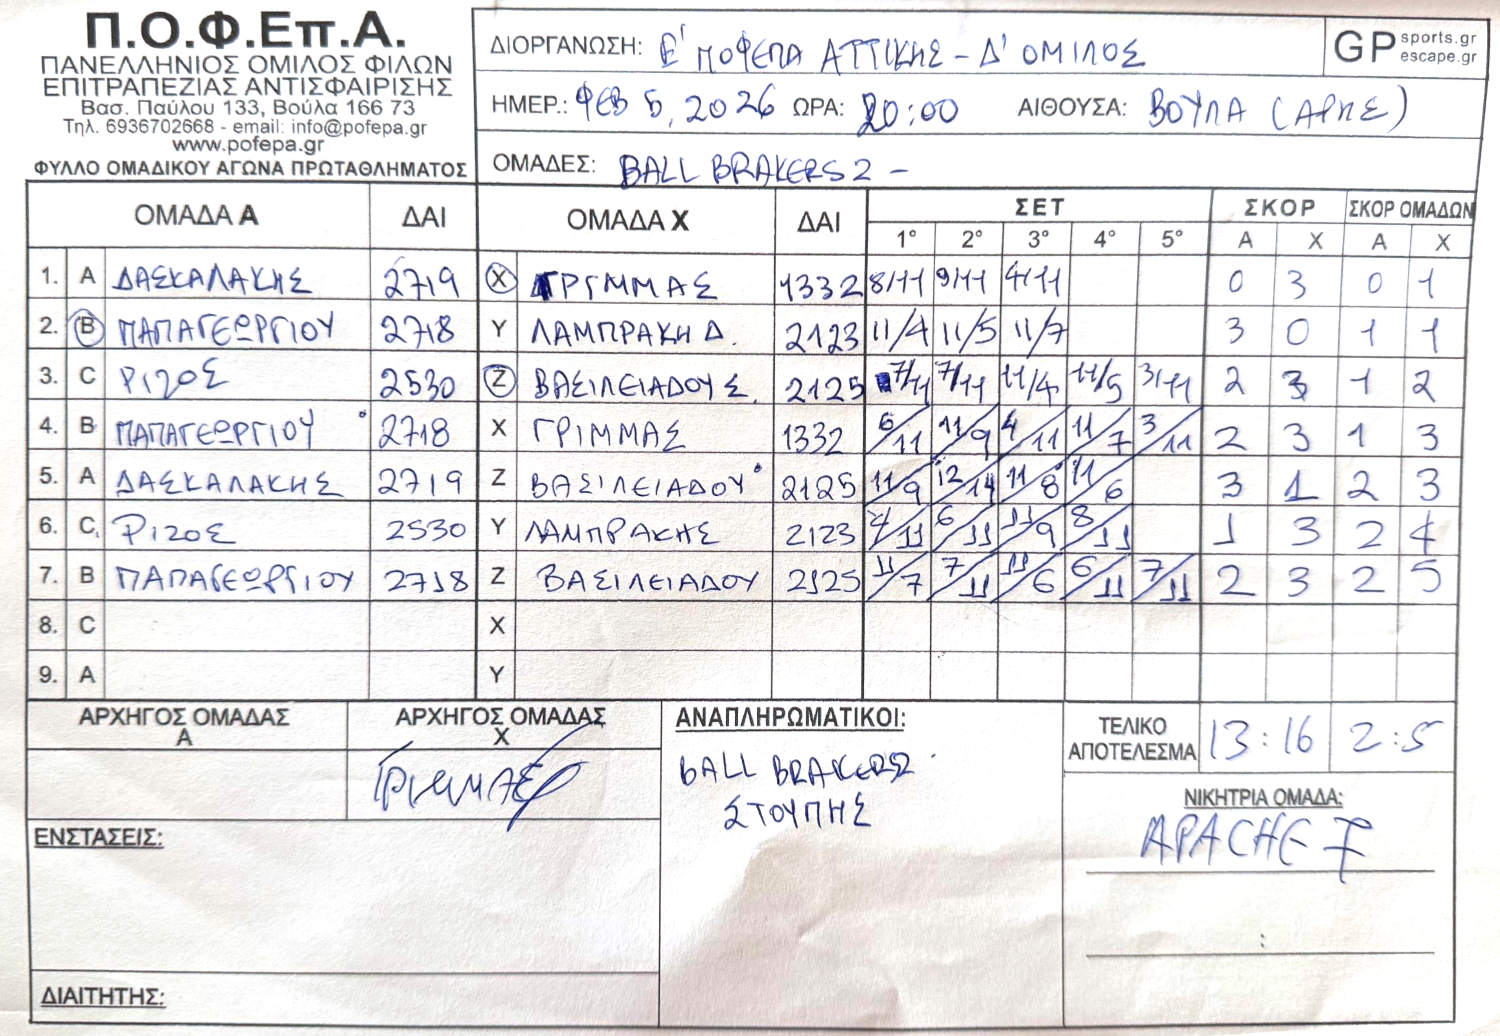 Π.Ο.Φ.Επ.Α.
ΠΑΝΕΛΛΗΝΙΟΣ ΟΜΙΛΟΣ ΦΙΛΩΝ
ΕΠΙΤΡΑΠΕΖΙΑΣ ΑΝΤΙΣΦΑΙΡΙΣΗΣ
Βασ. Παύλου 133, Βούλα 166 73
Τηλ. 6936702668 - email: info@pofepa.gr
www.pofepa.gr
ΦΥΛΛΟ ΟΜΑΔΙΚΟΥ ΑΓΩΝΑ ΠΡΩΤΑΘΛΗΜΑΤΟΣ
ΔΙΟΡΓΑΝΩΣΗ: Ε' ΠΟΦΕΠΑ ΑΤΤΙΚΗΣ - Δ' ΟΜΙΛΟΣ
GP sports.gr
escape.gr
ΗΜΕΡ.: ΦΕΒ 5, 2026 ΩΡΑ: 20:00 ΑΙΘΟΥΣΑ: ΒΟΥΛΑ (ΑΡΗΣ)
ΟΜΑΔΕΣ: BALL BRAKERS 2 -
ΟΜΑΔΑ Α ΔΑΙ ΟΜΑΔΑ Χ ΔΑΙ ΣΕΤ ΣΚΟΡ ΣΚΟΡ ΟΜΑΔΩΝ
1° 2° 3° 4° 5° Α Χ Α Χ
1. A ΔΑΣΚΑΛΑΚΗΣ 2719 X ΓΡΙΜΜΑΣ 1332 8/11 9/11 4/11 0 3 0 1
2. B ΠΑΠΑΓΕΩΡΓΙΟΥ 2718 Y ΛΑΜΠΡΑΚΗ Δ. 2123 11/4 11/5 11/7 3 0 1 1
3. C ΡΙΖΟΣ 2530 Z ΒΑΣΙΛΕΙΑΔΟΥ Σ. 2125 7/11 7/11 11/4 11/5 3/11 2 3 1 2
4. B ΠΑΠΑΓΕΩΡΓΙΟΥ 2718 X ΓΡΙΜΜΑΣ 1332 6/11 11/9 4/11 11/7 3/11 2 3 1 3
5. A ΔΑΣΚΑΛΑΚΗΣ 2719 Z ΒΑΣΙΛΕΙΑΔΟΥ 2125 11/9 12/14 11/8 11/6 3 1 2 3
6. C ΡΙΖΟΣ 2530 Y ΛΑΜΠΡΑΚΗΣ 2123 7/11 6/11 11/9 8/11 1 3 2 4
7. B ΠΑΠΑΓΕΩΡΓΙΟΥ 2718 Z ΒΑΣΙΛΕΙΑΔΟΥ 2125 11/7 7/11 11/6 6/11 7/11 2 3 2 5
8. C X
9. A Y
ΑΡΧΗΓΟΣ ΟΜΑΔΑΣ
Α
ΑΡΧΗΓΟΣ ΟΜΑΔΑΣ
Χ
ΓΡΙΜΜΑΣ
ΑΝΑΠΛΗΡΩΜΑΤΙΚΟΙ:
BALL BRAKERS 2
ΣΤΟΥΠΗΣ
ΤΕΛΙΚΟ
ΑΠΟΤΕΛΕΣΜΑ
13:16 2:5
ΝΙΚΗΤΡΙΑ ΟΜΑΔΑ:
APACHE 7
:
ΕΝΣΤΑΣΕΙΣ:
ΔΙΑΙΤΗΤΗΣ: